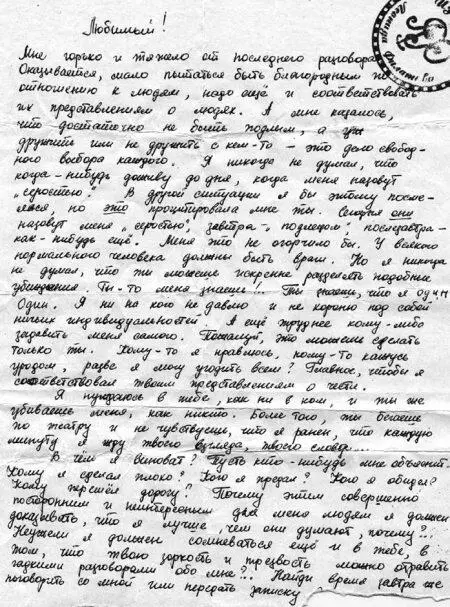 Любимый!
Мне горько и тяжело от последнего разговора.
Оказывается, мало пытаться быть благородным по
отношению к людям, надо ещё и соответствовать
их представлениям о людях. А мне казалось,
что достаточно не быть подлым, а уж
дружить или не дружить с кем-то – это дело свобод-
ного выбора каждого. Я никогда не думал, что
когда-нибудь доживу до дня, когда меня назовут
„серостью“. В другой ситуации я бы этому посме-
ялся, но это процитировала мне ты. Сегодня они
назовут меня „серостью“, завтра – „подлецом“, послезавтра –
как-нибудь ещё. Меня это не огорчило бы. У всякого
нормального человека должны быть враги. Но я никогда
не думал, что ты можешь искренне разделять подобные
убеждения. Ты-то меня знаешь!.. Ты знаешь, что я один
Один. Я ни на кого не давлю и не хороню под собой
ничьих индивидуальностей. А ещё труднее кому-либо
задавить меня самого. Пожалуй, это можешь сделать
только ты. Кому-то я нравлюсь, кому-то кажусь
уродом, разве я могу угодить всем? Главное, чтобы я
соответствовал твоим представлениям о чести.
Я нуждаюсь в тебе, как ни в ком, и ты же
убиваешь меня, как никто. Более того, ты бегаешь
по театру и не чувствуешь, что я ранен, что каждую
минуту я жду твоего взгляда, твоего слова...
В чём я виноват? Пусть кто-нибудь мне объяснит.
Кому я сделал плохо? Кого я предал? Кого я обидел?
Кому перешёл дорогу? Почему этим совершенно
посторонним и неинтересным для меня людям я должен
доказывать, что я лучше, чем они думают, почему?..
Неужели я должен сомневаться ещё и в тебе, в
том, что твою зоркость и трезвость можно отравить
гадкими разговорами обо мне?.. Найди время завтра же
поговорить со мной или передать записку
Леонида Филатова